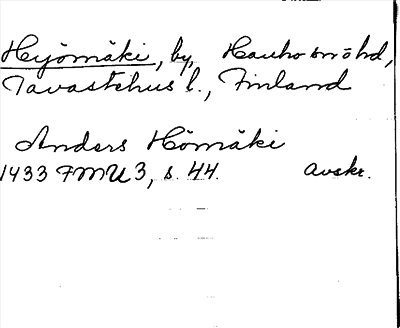 Heyömäki, by, Hauho snöhd,
Tavastehus l., Finland
Anders Hömäki
1433 FMU 3, s. 44. Avskr.